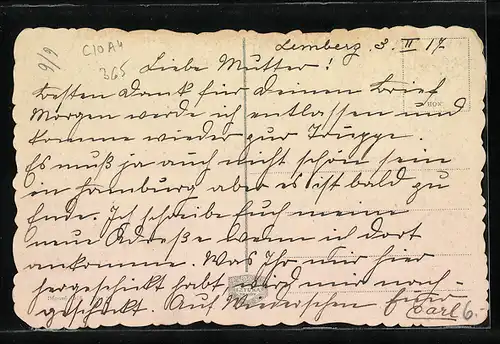 6/9
C10A4
365
Lemberg 3. II 17.
Liebe Mutter!
Besten Dank für Deinen Brief
Morgen werde ich entlassen und
komme wieder zur Truppe.
Es muß ja auch nicht schön sein
in Hamburg aber es ist bald zu
Ende. Ich schreibe Euch meine
neue Adreße wenn ich dort
ankomme. Was Ihr mir hier
hergeschickt habt wird mir nach-
geschickt. Auf Wiedersehen Euer
Carl
6.-